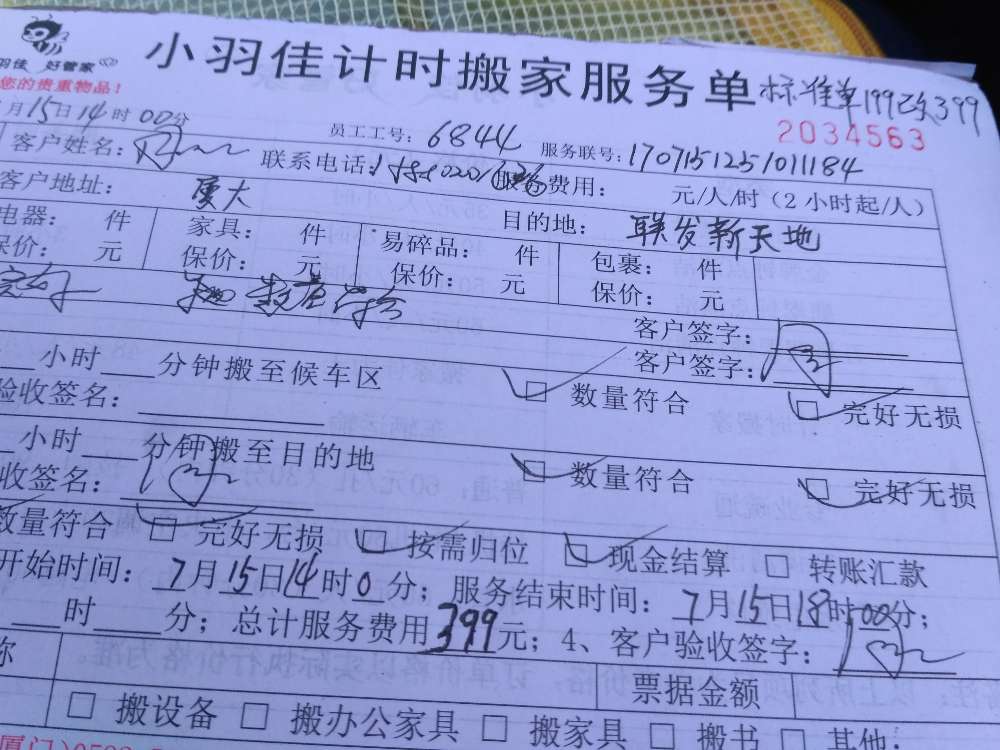 小羽佳计时搬家服务单 标准单199改399
羽佳 好管家
您的贵重物品！
2034563
月15日14时00分
员工工号：6844 服务联号：1707151251011184
客户姓名： 联系电话： 服务费用： 元/人/时（2小时起/人）
客户地址：厦大 目的地：联发新天地
电器： 件 家具： 件 易碎品： 件 包裹： 件
保价： 元 保价： 元 保价： 元 保价： 元
客户签字：
客户签字：
小时 分钟搬至候车区 数量符合 完好无损
验收签名：
小时 分钟搬至目的地 数量符合 完好无损
收签名：
数量符合 完好无损 按需归位 现金结算 转账汇款
开始时间：7月15日14时0分；服务结束时间：7月15日18时00分；
时 分；总计服务费用399元；4、客户验收签字：
称 票据金额
搬设备 搬办公家具 搬家具 搬书 其他：